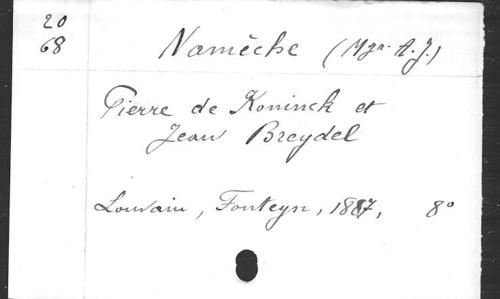 20
68
Namèche (Mgr. A. J.)
Pierre de Koninck et
Jean Breydel
Louvain, Fonteyn, 1887, 8°